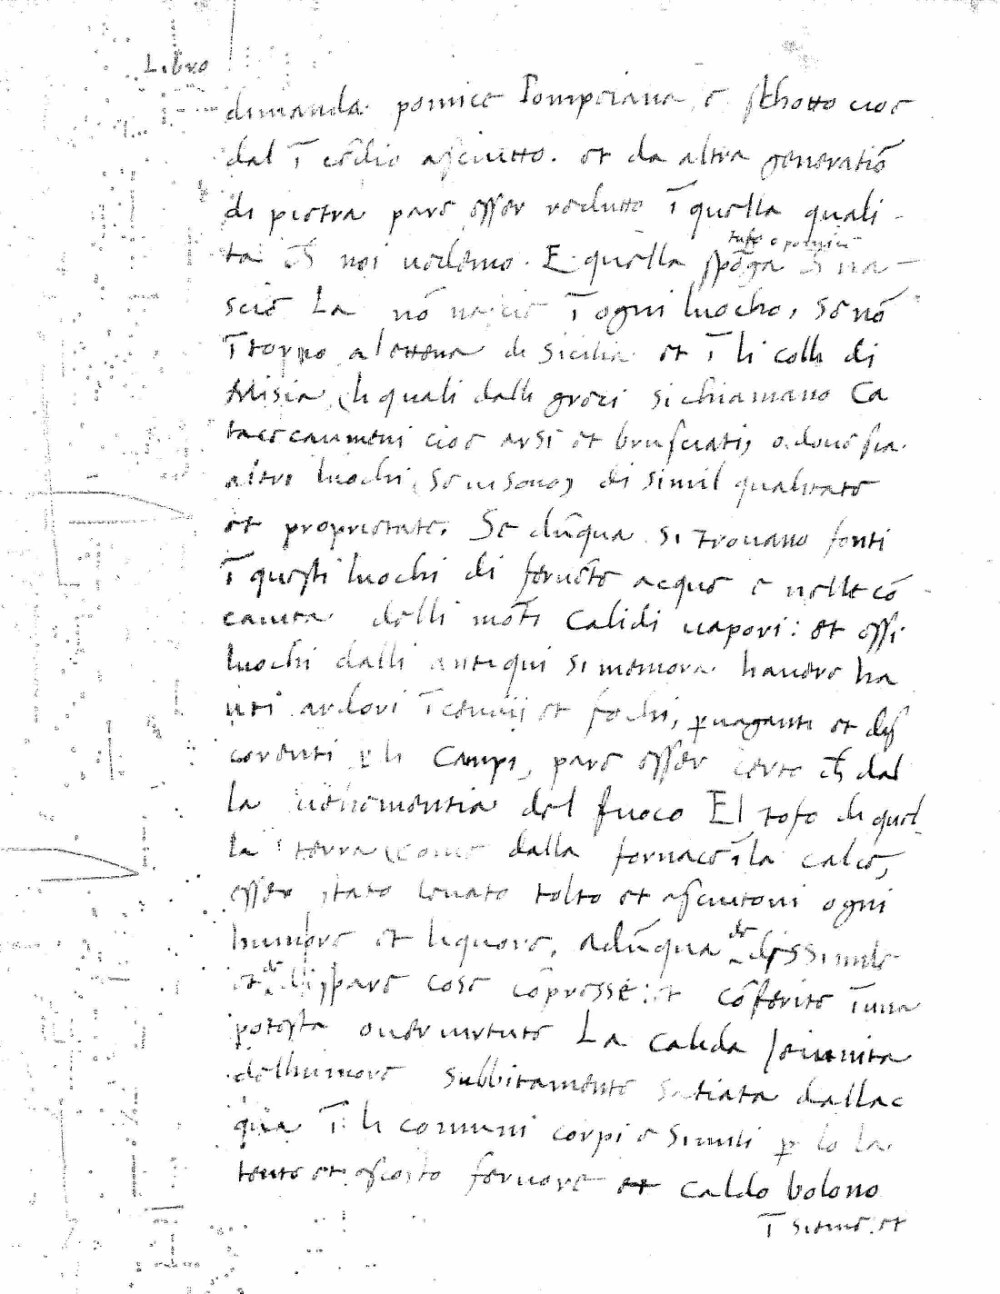 Libro
dimanda pomice Pompeiana, e schotto cioe
dal ī cēdio asciutto. et da altra generatiō
di pietra pare esser redutto ī quella quali-
tufo e pomici
ta ch̄ noi vedemo. E quella spōga ch̄ na-
scie La nō nascie ī ogni luocho, se nō
ītorno alettena di Sicilia et ī li colli di
Misia, li quali dalli greci si chiamano Ca
tacecaumeni cioe arsi et brusciati, o dove sia
altri luochi, se vi sono, di simil qualitate
et proprietate. Se dūqua si trovano fonti
ī questi luochi di fervēte acque e nelle cō
cavita delli mōti Calidi vapori: et essi
luochi dalli antiqui si memora havere ha
uti ardori ī cendij et fochi, p̱vaganti et dis
correnti p̱ li Campi, pare esser certo ch̄ dal
la vehementia del fuoco El tofo di quel-
la terra, come dalla fornace ī la calce,
esser stato levato tolto et asciutovi ogni
humore et liquore, adūqua de dissimile
et de dispare cose cōpresse: et cōferite ī una
potesta over virtute La calida Jeiunita
dellhumore subbitamente satiata dallac
qua ī li comuni corpi e simili p̱ lo la
tente et ascosto fervore et caldo boleno
ī sieme. et